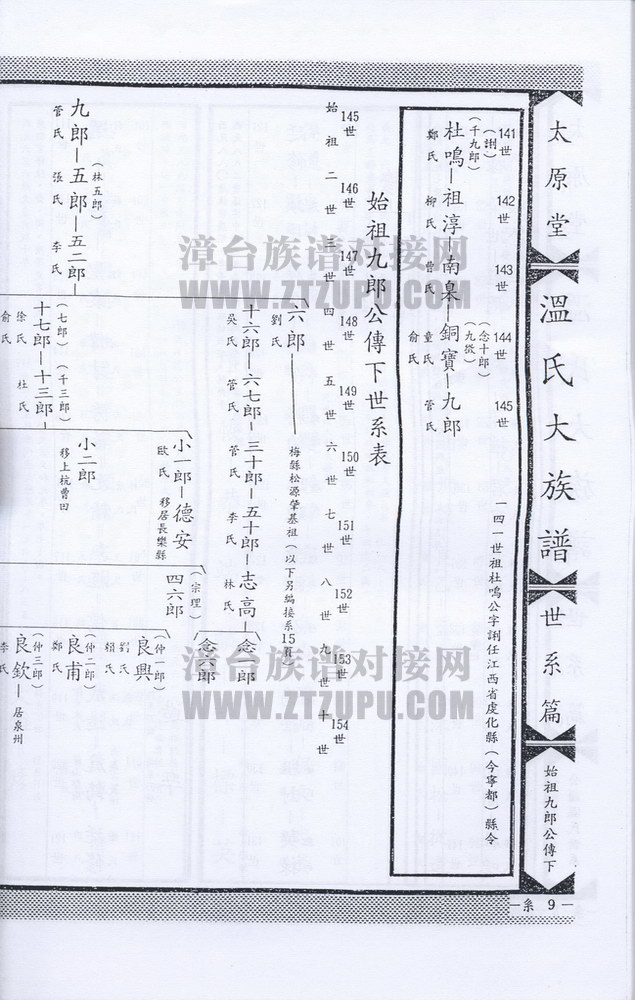 太原堂
溫氏大族譜
世系篇
始祖九郎公傳下
系 9
141世
142世
143世
144世
145世
(千九郎)
(詶)
杜鳴—祖淳—南臯—銅寶—九郎
(念十郎)
(九微)
鄭氏
柳氏
曾氏
童氏
俞氏
管氏
一四一世祖杜鳴公字詶任江西省虔化縣(今寧都)縣令
始祖九郎公傳下世系表
145世
146世
147世
148世
149世
150世
151世
152世
153世
154世
始祖二世三世四世五世六世七世八世九世十世
六郎
劉氏
梅縣松源肇基祖(以下另編接系15頁)
十六郎—六七郎—三十郎—五十郎—志高—念一郎
念六郎
吳氏
管氏
管氏
李氏
林氏
九郎—五郎—五二郎
(林五郎)
管氏
張氏
李氏
(七郎)
(千三郎)
十七郎—十三郎
徐氏
俞氏
杜氏
小一郎—德安
歐氏
移居長樂縣
小二郎
移上杭曹田
(宗理)
四六郎
(仲一郎)
良興
劉氏
賴氏
(仲二郎)
良甫
鄭氏
(仲三郎)
良欽—居泉州
李氏
漳台族谱对接网
WWW.ZTZUPU.COM
漳台族谱对接网
WWW.ZTZUPU.COM